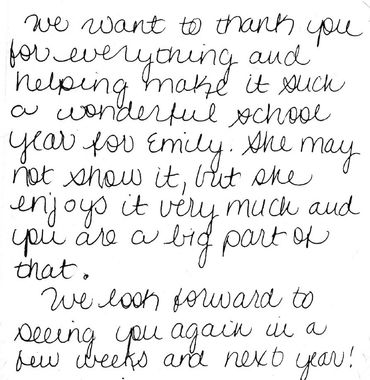 We want to thank you
for everything and
helping make it such
a wonderful school
year for Emily. She may
not show it, but she
enjoys it very much and
you are a big part of
that.
We look forward to
seeing you again in a
few weeks and next year!